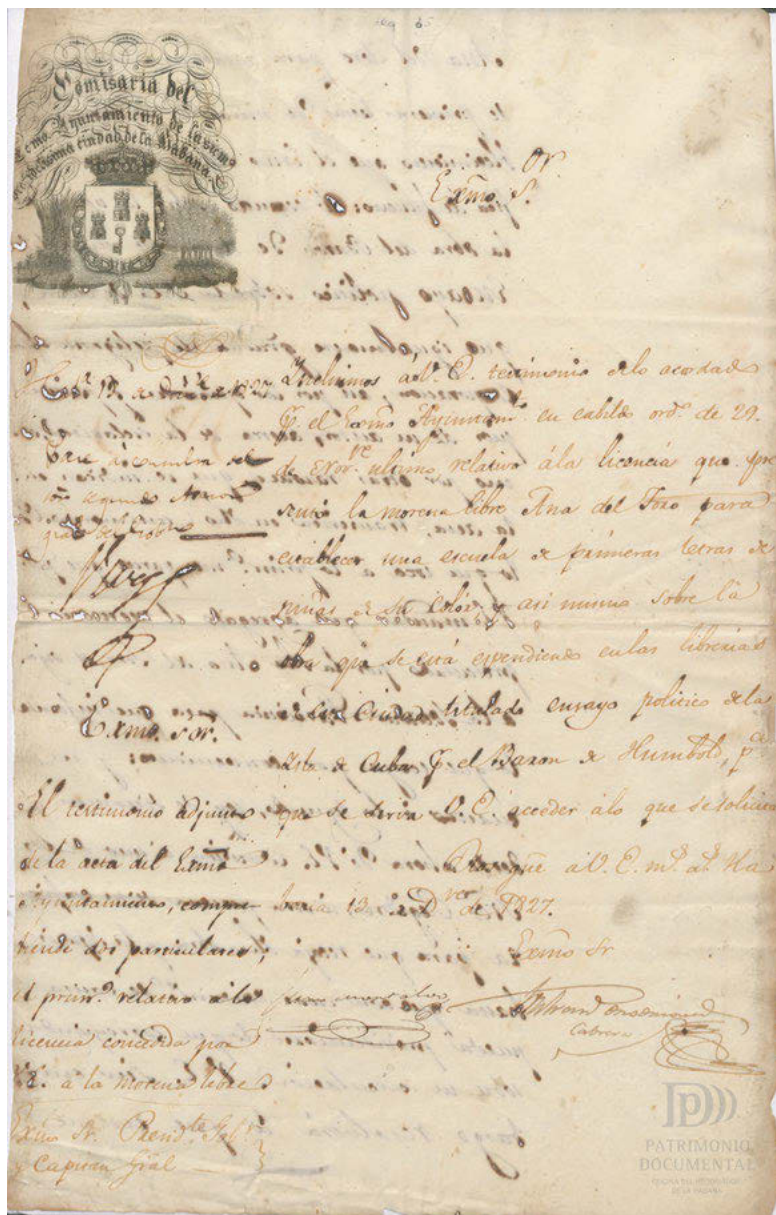 Comisaria del
Exmo Ayuntamiento de la siempre
fidelisima ciudad de la Habana.
Exmo. Sor.
Incluimos á V. E. testimonio de lo acordado
p. el Exmo Ayuntamto. en cabildo ordo. de 29.
de Novre. ultimo, relativo á la licencia que pre
sentó la morena libre Ana del Toro para
establecer una escuela de primeras letras de
niñas de su color, y asi mismo sobre la
obra que se está espendiendo en las librerias
de esta Ciudad titulado ensayo politico de la
Isla de Cuba p. el Baron de Humbold, pa.
que se serva V. E. acceder á lo que se solicita
Dios gue á V. E. ms. as. Ha
bana 13 de Dre. de 1827.
Exmo Sr
Cabrera
Haba. 19 de Dicre. de 1827
Pase á consulta del
Sor segundo
Exmo. Sor.
El testimonio adjunto
de la acta del Exmo
Ayuntamiento, compre
hende dos particulares;
el primo. relativo a la
licencia concedida por
V.E. a la morena libre
Exmo Sr. Presdte. Gobr.
y Capitan Gral
PATRIMONIO
DOCUMENTAL
OFICINA DEL HISTORIADOR
DE LA HABANA